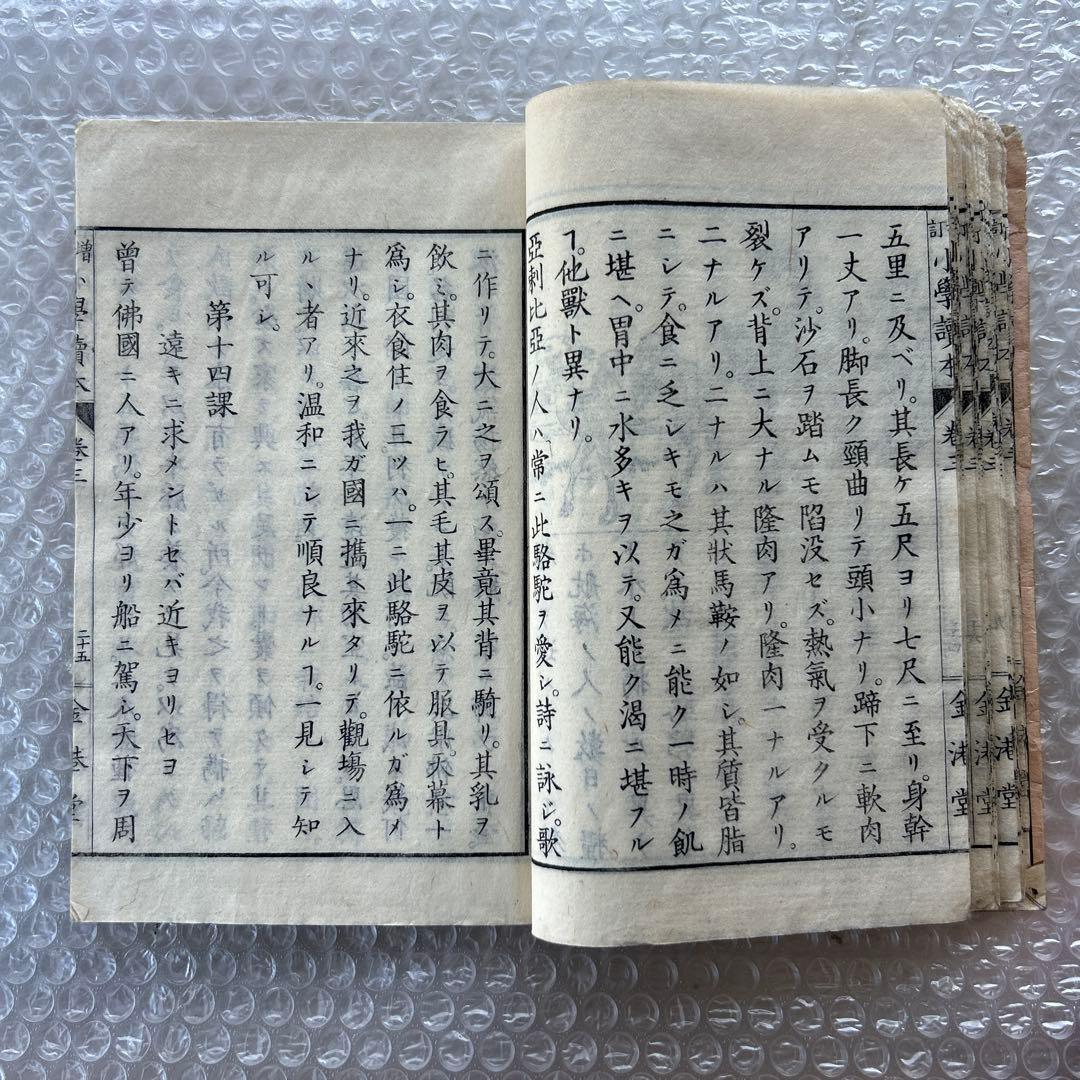 五里ニ及ベリ。其長ケ五尺ヨリ七尺ニ至リ。身幹
一丈アリ。脚長ク頸曲リテ頭小ナリ。蹄下ニ軟肉
アリテ。沙石ヲ踏ムモ陷没セズ。熱氣ヲ受クルモ
裂ケズ。背上ニ大ナル隆肉アリ。隆肉一ナルアリ。
二ナルアリ。二ナルハ其狀馬鞍ノ如シ。其質皆脂
ニシテ。食ニ乏シキモ之ガ爲メニ能ク一時ノ飢
ニ堪ヘ。胃中ニ水多キヲ以テ。又能ク渇ニ堪フル
ヿ。他獸ト異ナリ。
亞剌比亞ノ人ハ、常ニ此駱駝ヲ愛シ。詩ニ詠ジ。歌
ニ作リテ。大ニ之ヲ頌ス。畢竟其背ニ騎リ。其乳ヲ
飮ミ。其肉ヲ食ラヒ。其毛其皮ヲ以テ服具。天幕ト
爲シ。衣食住ノ三ツハ。一ニ此駱駝ニ依ルガ爲メ
ナリ。近來之ヲ我ガ國ニ攜ヘ來タリテ。觀場ニ入
ルヽ者アリ。温和ニシテ順良ナルヿ。一見シテ知
ル可シ。
第十四課
遠キニ求メントセバ近キヨリセヨ
曾テ佛國ニ人アリ。年少ヨリ船ニ駕シ。天下ヲ周
訂 小學讀本 卷三 金港堂
小學讀本 卷三 二十五 金港堂